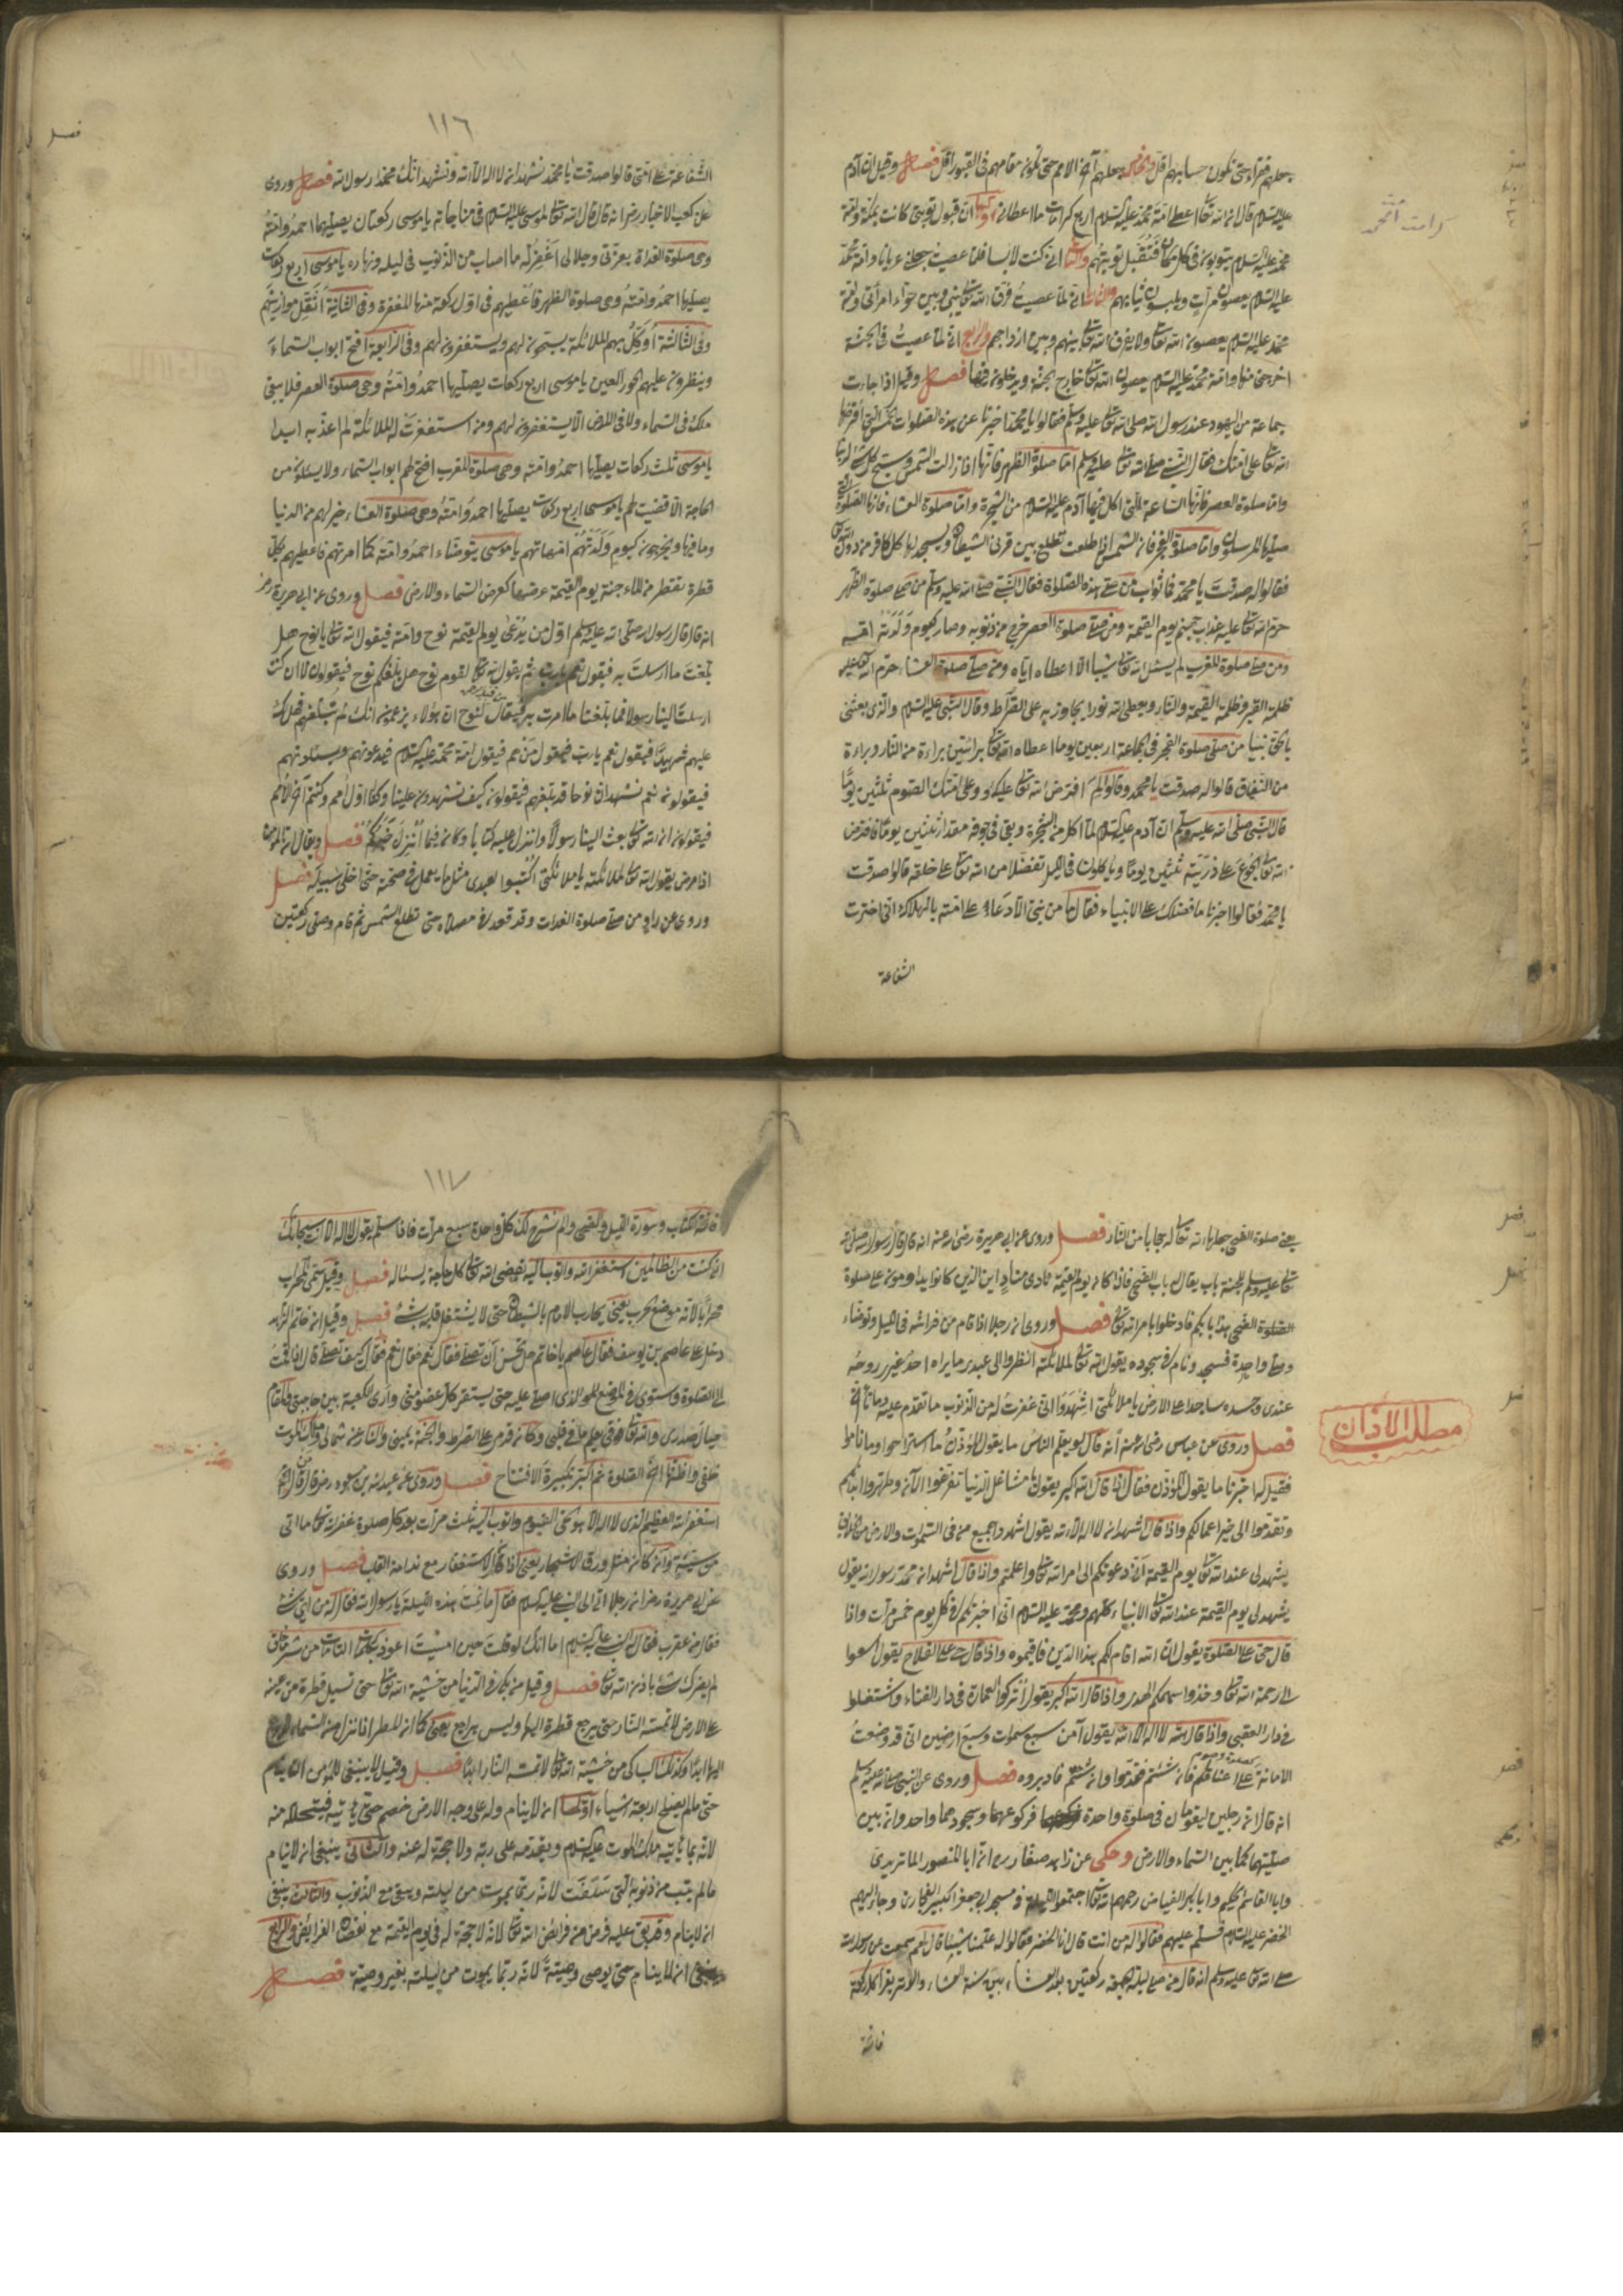 يجعلهم فقراء حتى تكون حسابهم اقل والخامس جعلهم آخر الامم حتى تكون مقامهم فى القبور اقل فصل وقيل ان آدم
عليه السلام قال ان الله تعالى اعطى امة محمد عليه السلام اربع كرامات ما اعطانى ان قبول توبتى كانت بمكة وامة
محمد عليه السلام يتوبون فى كل مكان فتقبل توبتهم والثانى انى كنت لابسا فلما عصيت جعلنى عريانا وامة محمد
عليه السلام يعصون مرات ويلبسون ثيابهم والثالث انى لما عصيت فرق الله تعالى بينى وبين حواء امرأتى وامة
محمد عليه السلام يعصون الله تعالى ولا يفرق الله تعالى بينهم وبين ازواجهم والرابع انى لما عصيت فى الجنة
اخرجنى منها وامة محمد عليه السلام يعصون الله تعالى خارج الجنة ويدخلون فيها فصل وقيل اذا جاءت
جماعة من اليهود عند رسول الله صلى الله تعالى عليه وسلم فقالوا يا محمد اخبرنا عن هذه الصلوات الخمس التى افترضها
الله تعالى على امتك فقال النبى صلى الله تعالى عليه وسلم اما صلوة الظهر فانها اذا زالت الشمس وسبح كل شئ لربها
واما صلوة العصر فانها الساعة التى اكل فيها آدم عليه السلام من الشجرة واما صلوة العشاء فانها الصلوة التى
صليها المرسلون واما صلوة الفجر فان الشمس اذا طلعت تطلع بين قرنى الشيطان ويسجد لها كل كافر من دون الله تعالى
فقالوا له صدقت يا محمد فما ثواب من صلى هذه الصلوة فقال النبى صلى الله عليه وسلم من صلى صلوة الظهر
حرم الله تعالى عليه عذاب جهنم يوم القيمة ومن صلى صلوة العصر خرج من ذنوبه وصار كيوم ولدته امه
ومن صلى صلوة المغرب لم يسئل الله تعالى شيئا الا اعطاه اياه ومن صلى صلوة العشاء حرم الله عليه
ظلمة القبر وظلمة القيمة والنار ويعطى الله نورا يجاوز به على الصراط وقال النبى عليه السلام والذى بعثنى
بالحق نبيا من صلى صلوة الفجر فى الجماعة اربعين يوما اعطاه الله تعالى برائتين براءة من النار وبراءة
من النفاق قالوا له صدقت يا محمد وقالوا لم افترض الله تعالى عليك وعلى امتك الصوم ثلثين يوما
قال النبى صلى الله عليه وسلم ان آدم عليه السلام لما اكل من الشجرة وبقى فى جوفه مقدار ثلثين يوما فافترض
الله تعالى الجوع على ذريته ثلثين يوما وياكلون فى الليل تفضلا من الله تعالى على خلقه قالوا صدقت
يا محمد فقالوا اخبرنا ما فضلك على الانبياء فقال ما من نبى الا دعا على امته بالهلاك انى اخترت
الشفاعة
كرامت امت محمد
١١٦
الشفاعة على امتى قالوا صدقت يا محمد نشهد ان لا اله الا الله ونشهد انك محمد رسول الله فصل وروى
عن كعب الاخبار رضى انه قال قال الله تعالى لموسى عليه السلام فى مناجاته يا موسى ركعتان يصليهما احمد وامته
وهى صلوة الغداة بعزتى وجلالى اغفر له ما اصاب من الذنوب فى ليله ونهاره يا موسى اربع ركعات
يصليها احمد وامته وهى صلوة الظهر فاعطيهم فى اول ركعة منها المغفرة وفى الثانية اثقل موازينهم
وفى الثالثة اوكل بهم الملائكة يسبحون لهم ويستغفرون لهم وفى الرابعة افتح ابواب السماء
وينظرون عليهم الحور العين يا موسى اربع ركعات يصليها احمد وامته وهى صلوة العصر فلا يبقى
ملك فى السماء ولا فى الارض الا يستغفرون لهم ومن استغفرت له الملائكة لم اعذبه ابدا
يا موسى ثلث ركعات يصليها احمد وامته وهى صلوة المغرب افتح لهم ابواب السماء ولا يسئلون من
الحاجة الا قضيت لهم يا موسى اربع ركعات يصليها احمد وامته وهى صلوة العشاء خير لهم من الدنيا
وما فيها ويخرجون كيوم ولدتهم امهاتهم يا موسى يتوضاء احمد وامته كما امرتهم فاعطيهم بكل
قطرة تقطر من الماء جنة يوم القيمة عرضها كعرض السماء والارض فصل وروى عن ابى هريرة رض
انه قال قال رسول الله صلى الله عليه وسلم اول من يدعى يوم القيمة نوح وامته فيقول الله تعالى يا نوح هل
بلغت ما ارسلت به فيقول نعم يا رب ثم يقول الله تعالى لقوم نوح هل بلغكم نوح فيقولون لا ان كنت
ارسلت الينا رسولا فما بلغنا ما امرت به فيقال لنوح ان هؤلاء يزعمون انك لم تبلغهم فهل لك
عليهم شهيدا فيقول نعم يا رب فيقول من هم فيقول امة محمد عليه السلام فيدعونهم ويسئلونهم
فيقولون نعم نشهد ان نوحا قد بلغهم فيقولون كيف تشهدون علينا وكنا اول امم وكنتم آخر الامم
فيقولون ان الله تعالى بعث الينا رسولا وانزل عليه كتابا وكان فيما انزل خبركم فصل ويقال ان المؤمن
اذا مرض يقول الله تعالى للملائكته يا ملائكتى اكتبوا لعبدى مثل ما يعمل فى صحته حتى اخلى سبيله فصل
وروى عن راو من صلى صلوة الغدات وقد قعد فى مصلاه حتى تطلع الشمس ثم قام وصلى ركعتين
فصل
يعنى صلوة الضحى جعلها الله تعالى له حجابا من النار فصل وروى عن ابى هريرة رضى الله عنه انه قال قال رسول الله صلى الله
تعالى عليه وسلم للجنة باب يقال له باب الضحى فاذا كان يوم القيمة نادى مناد اين الذين كانوا يداومون على صلوة
الصلوة الضحى هذا بابكم فادخلوا بامر الله تعالى فصل وروى ان رجلا اذا قام من فراشه فى الليل وتوضاء
وصلى واحدة فسجد ونام فى سجوده يقول الله تعالى لملائكته انظروا الى عبدى ما يراه احد غيرى روحه
عندى وجسده ساجدا على الارض يا ملائكتى اشهدوا انى غفرت له من الذنوب ما تقدم عليه وما تأخر
فصل وروى عن عباس رضى الله عنه انه قال لو يعلم الناس ما يقول المؤذن ما استراحوا وما ناموا
فقيل له اخبرنا ما يقول المؤذن فقال اذا قال الله اكبر يقول يا مشاغل الدنيا تفرغوا الآن وطهروا ابدانكم
وتقدموا الى خير اعمالكم واذا قال اشهد ان لا اله الا الله يقول اشهدوا جميع من فى السموات والارض
يشهد لى عند الله تعالى يوم القيمة انى دعوتكم الى امر الله تعالى واعلمتم واذا قال اشهد ان محمد رسول الله يقول
يشهد لى يوم القيمة عند الله تعالى الانبياء كلهم ومحمد عليه السلام انى اخبرتكم فى كل يوم خمس مرات واذا
قال حى على الصلوة يقول ان الله اقام لكم هذا الدين فاقيموه واذا قال حى على الفلاح يقول اسعوا
الى رحمة الله تعالى وخذوا سهمكم الهدى واذا قال الله اكبر يقول اتركوا العمارة فى دار الفناء واشتغلوا
فى دار العقبى واذا قال لا اله الا الله يقول آمن سبع سموات وسبع ارضين انى قد وضعت
الامانة على اعناقكم فان شئتم فتقدموا وان شئتم فادبروه فصل وروى عن النبى صلى الله عليه وسلم
انه قال ان رجلين ليقومان فى صلوة واحدة فركوعهما وسجودهما واحد وان بين
صليتهما كما بين السماء والارض وحكى عن زاهد صفار ره ان ابا المنصور الماتريدى
وابا القاسم الحكيم وابا بكر العياض رحمهم الله تعالى اجتمعوا ليلة فى مسجد ابو جعفر الكبير البخارى وجاء اليهم
الخضر عليه السلام فسلم عليهم فقالوا له من انت قال انا الخضر فقالوا له علمنا شيئا قال نعم سمعت عن رسول الله
صلى الله تعالى عليه وسلم انه قال من صلى ليلة الجمعة ركعتين بعد العشاء بين سنة العشاء والوتر يقرأ كل ركعة
فاتحة
مطلب الاذان
١١٧
فاتحة الكتاب وسورة الفيل والضحى والم نشرح لك كل واحدة سبع مرات فاذا سلم يقول لا اله الا انت سبحانك
انى كنت من الظالمين استغفر الله واتوب اليه يقضى الله تعالى كل حاجة يسئاله فصل وقيل سمى المحراب
محرابا لانه موضع الحرب يعنى يحارب الامام بالشيطان حتى لا يشتغل قلبه بشئ فصل وقيل ان خاتم الزاهد
دخل على عاصم بن يوسف فقال عاصم يا خاتم هل تحسن ان تصلى فقال نعم فقال كيف تصلى قال اذا قمت
الى الصلوة واستوى فى الموضع الذى اصلى عليه حتى يستقر كل عضو منى وارى الكعبة بين حاجبى والمقام
حيال صدرى والله تعالى فوقى يعلم ما فى قلبى وكان قدمى على الصراط والجنة يمينى والنار عن شمالى وملك الموت
خلفى واظنها آخر الصلوة ثم اكبر تكبيرة الافتتاح فصل وروى عن عبد الله بن مسعود رض قال من قال
استغفر الله العظيم الذى لا اله الا هو الحى القيوم واتوب اليه ثلث مرات بعد كل صلوة غفر الله تعالى ما اتى
من سيئته وان كان مثل ورق الاشجار يعنى اذا كان الاستغفار مع ندامة القلب فصل وروى
عن ابى هريرة رض ان رجلا اتى الى النبى عليه السلام فقال ما نمت هذه الليلة يا رسول الله فقال له من اى شئ
فقال من عقرب فقال النبى عليه السلام اما انك لو قلت حين امسيت اعوذ بكلمات الله التامات من شر ما خلق
لم يضرك شئ باذن الله تعالى فصل وقيل من بكى فى الدنيا من خشية الله تعالى حتى تسيل قطرة من عينه
على الارض لا تمسه النار حتى يرجع قطرة اليها وليس براجع يعنى كما ان المطر اذا نزل من السماء لا يرجع
اليها ابدا وكذلك الباكى من خشية الله تعالى لا تمسه النار ابدا فصل وقيل لا ينبغى للمؤمن ان ينام
حتى ما لم يصلح اربعة اشياء اولها ان لا ينام وله على وجه الارض خصم حتى يأتيه فيتحلله منه
لانه ربما يأتيه ملك الموت عليه السلام ويقدمه على ربه ولا حجة له عنه والثانى ينبغى ان لا ينام
ما لم يتب من ذنوبه التى سلفت لانه ربما يموت من ليلته وبقى مع الذنوب والثالث ينبغى
ان لا ينام وقد بقى عليه فرض من فرائض الله تعالى لانه لا حجة له فى يوم القيمة مع نقصان الفرائض والرابع
ينبغى ان لا ينام حتى يوصى وصيته لانه ربما يموت من ليلته بغير وصيته فصل